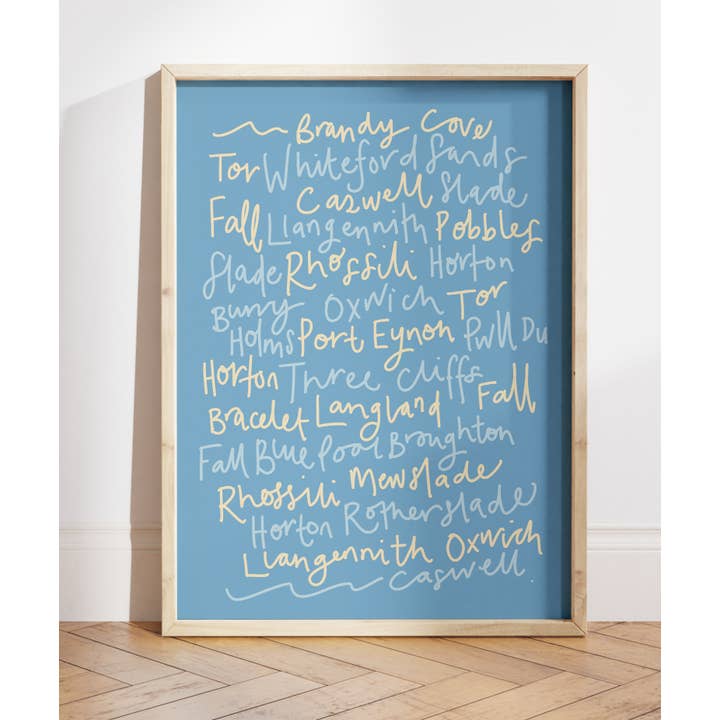 Brandy Cove
Tor Whiteford Sands
Caswell Slade
Fall Llangennith Pobbles
Slade Rhossili Horton
Burry Oxwich Tor
Holms Port Eynon Pwll Du
Horton Three Cliffs
Bracelet Langland Fall
Fall Blue Pool Broughton
Rhossili Mewslade
Horton Rotherslade
Llangennith Oxwich
Caswell.